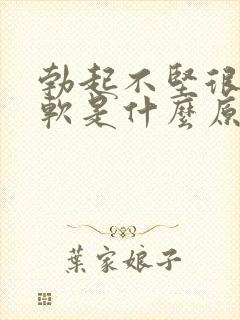 勃起不堅很
軟是什麼原
葉家娘子